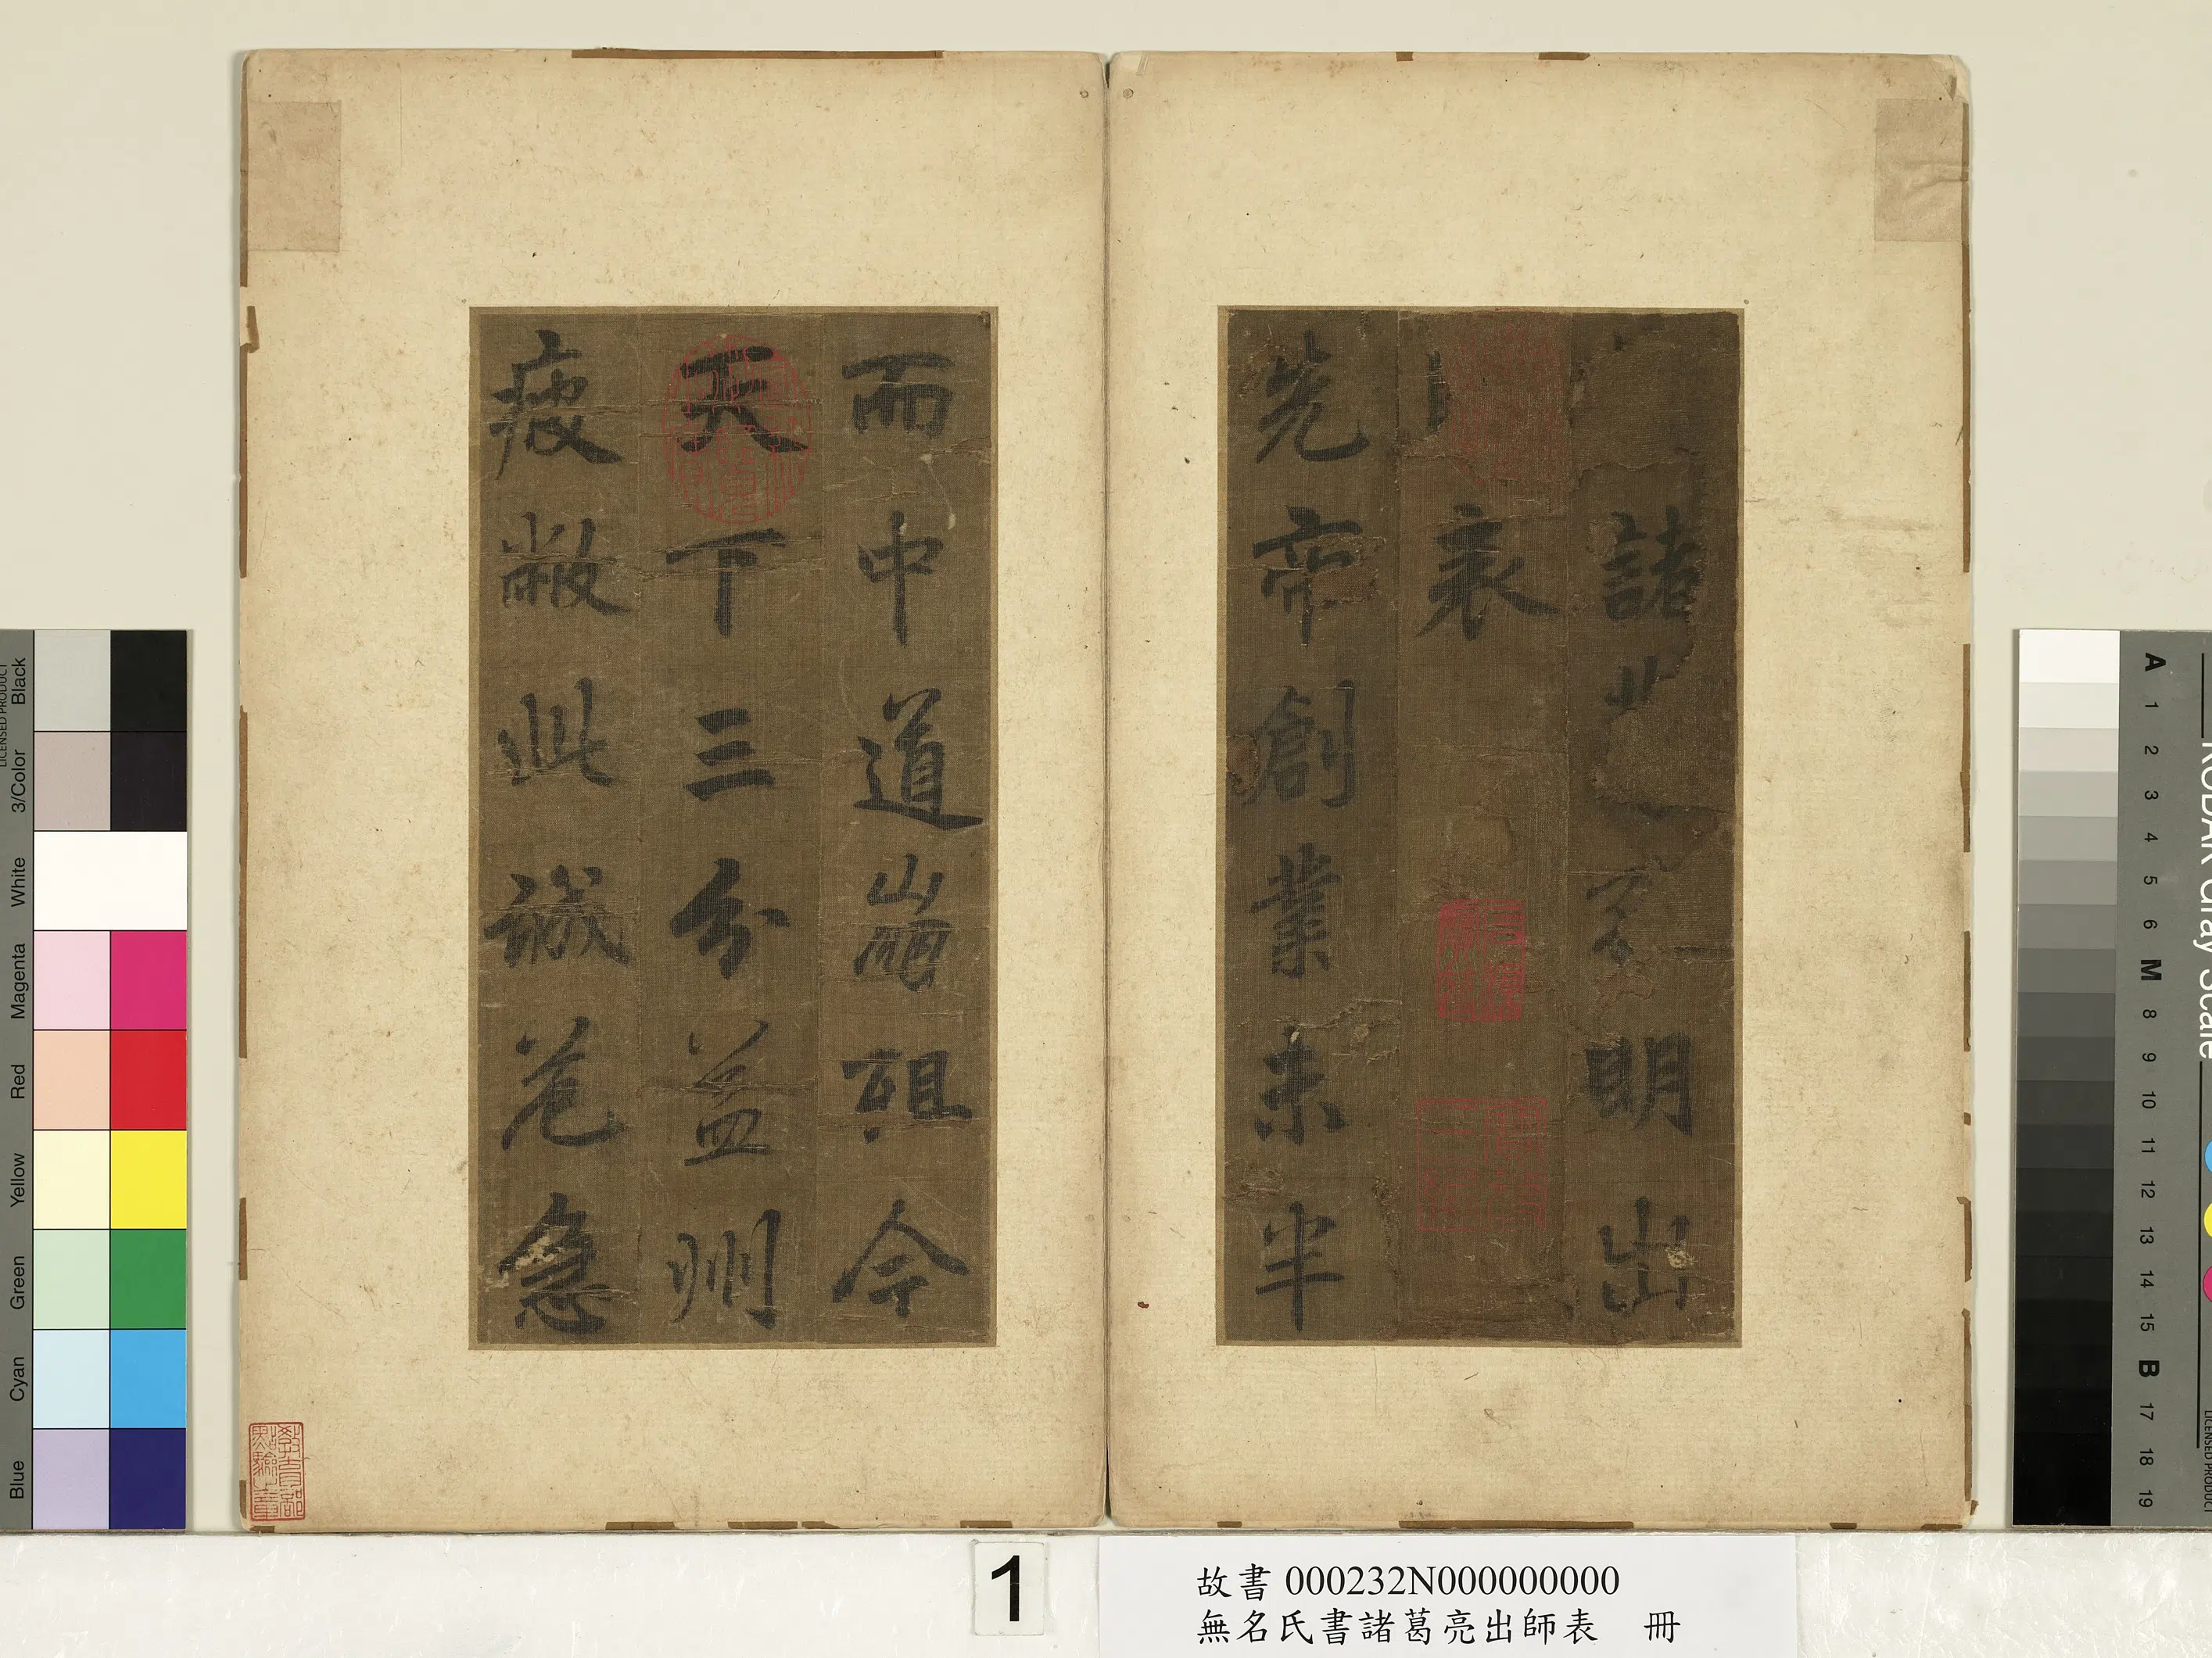 諸
明出
表
先帝創業未半
而中道崩殂今
天下三分益州
疲敝此誠危急
教育部
點驗之章
1
故書 000232N000000000
無名氏書諸葛亮出師表 冊
Black
3/Color
White
Magenta
Red
Yellow
Green
Cyan
Blue
LICENSED PRODUCT
KODAK Gray Scale
A 1 2 3 4 5 6 M 8 9 10 11 12 13 14 15 B 17 18 19
LICENSED PRODUCT